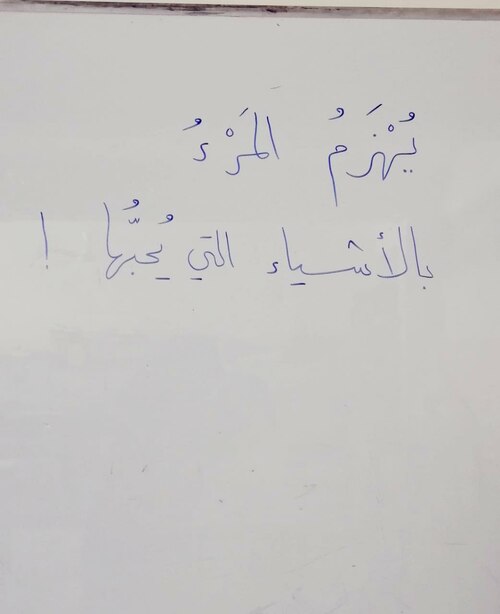 يُهْزَمُ المَرْءُ
بالأشياء التي يُحبُّها !